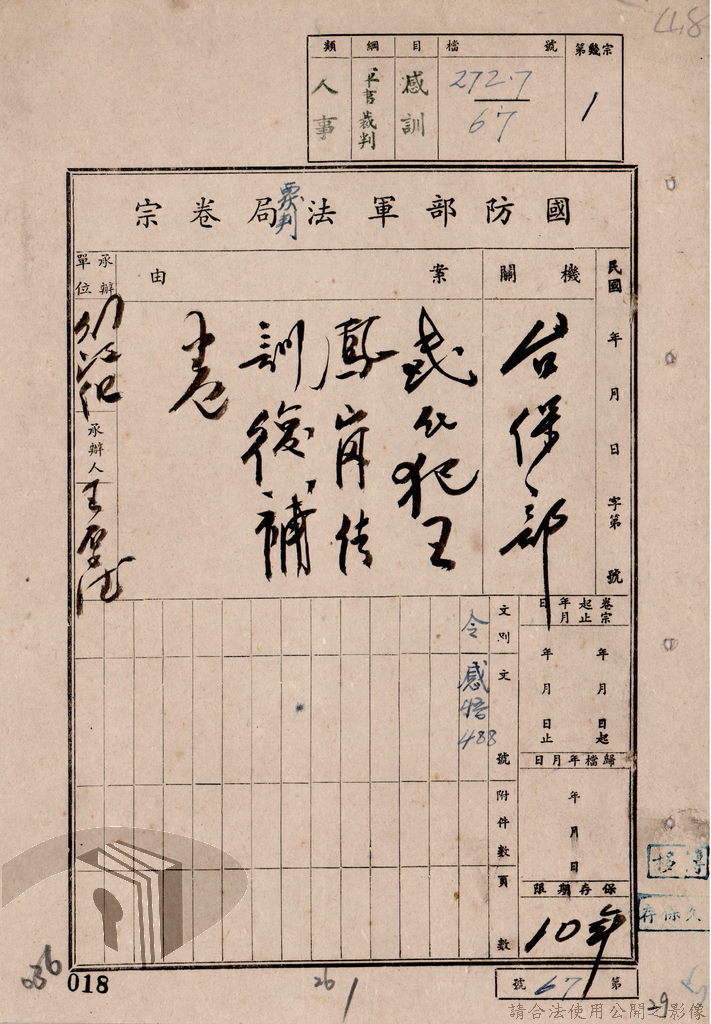 類 綱 目 檔 號 第幾宗
人事 裁判 感訓 272.7/67 1
國防部軍法局卷宗
民國 年 月 日 字第 號
機關
台保部
案由
犯王
鳳崗
訓後補
卷
承辦單位
承辦人 王
卷宗起止年月日
年 月 日起
年 月 日止
歸檔年月日
年 月 日
保存期限
10年
文別 令
文號 感 488
附件數
頁數
第 67 號
018
036
26
1
29
請合法使用公開之影像